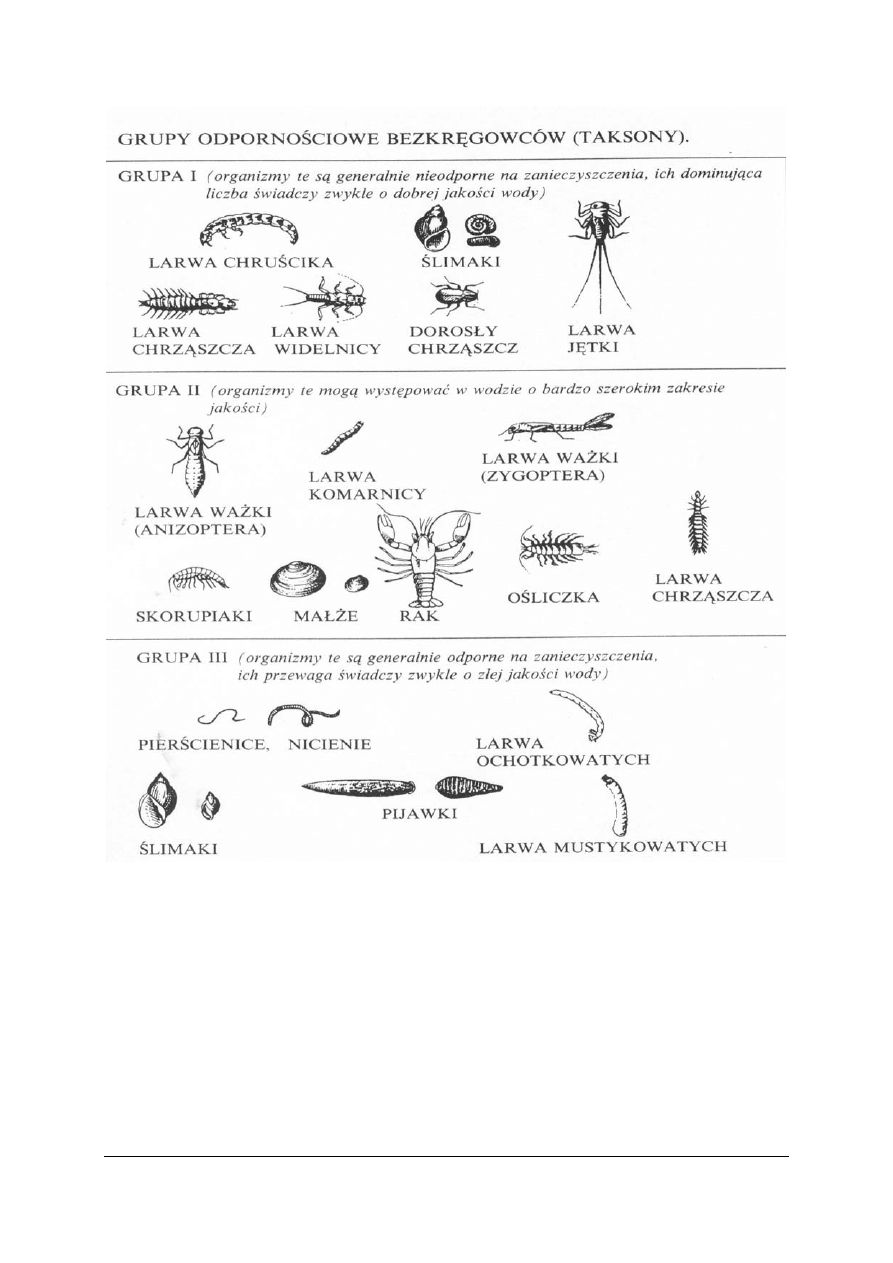 GRUPY ODPORNOŚCIOWE BEZKRĘGOWCÓW (TAKSONY).
GRUPA I (organizmy te są generalnie nieodporne na zanieczyszczenia, ich dominująca
liczba świadczy zwykle o dobrej jakości wody)
LARWA CHRUŚCIKA
ŚLIMAKI
LARWA
CHRZĄSZCZA
LARWA
WIDELNICY
DOROSŁY
CHRZĄSZCZ
LARWA
JĘTKI
GRUPA II (organizmy te mogą występować w wodzie o bardzo szerokim zakresie
jakości)
LARWA WAŻKI
(ANIZOPTERA)
LARWA
KOMARNICY
LARWA WAŻKI
(ZYGOPTERA)
SKORUPIAKI
MAŁŻE
RAK
OŚLICZKA
LARWA
CHRZĄSZCZA
GRUPA III (organizmy te są generalnie odporne na zanieczyszczenia,
ich przewaga świadczy zwykle o złej jakości wody)
PIERŚCIENICE, NICIENIE
LARWA
OCHOTKOWATYCH
ŚLIMAKI
PIJAWKI
LARWA MUSTYKOWATYCH